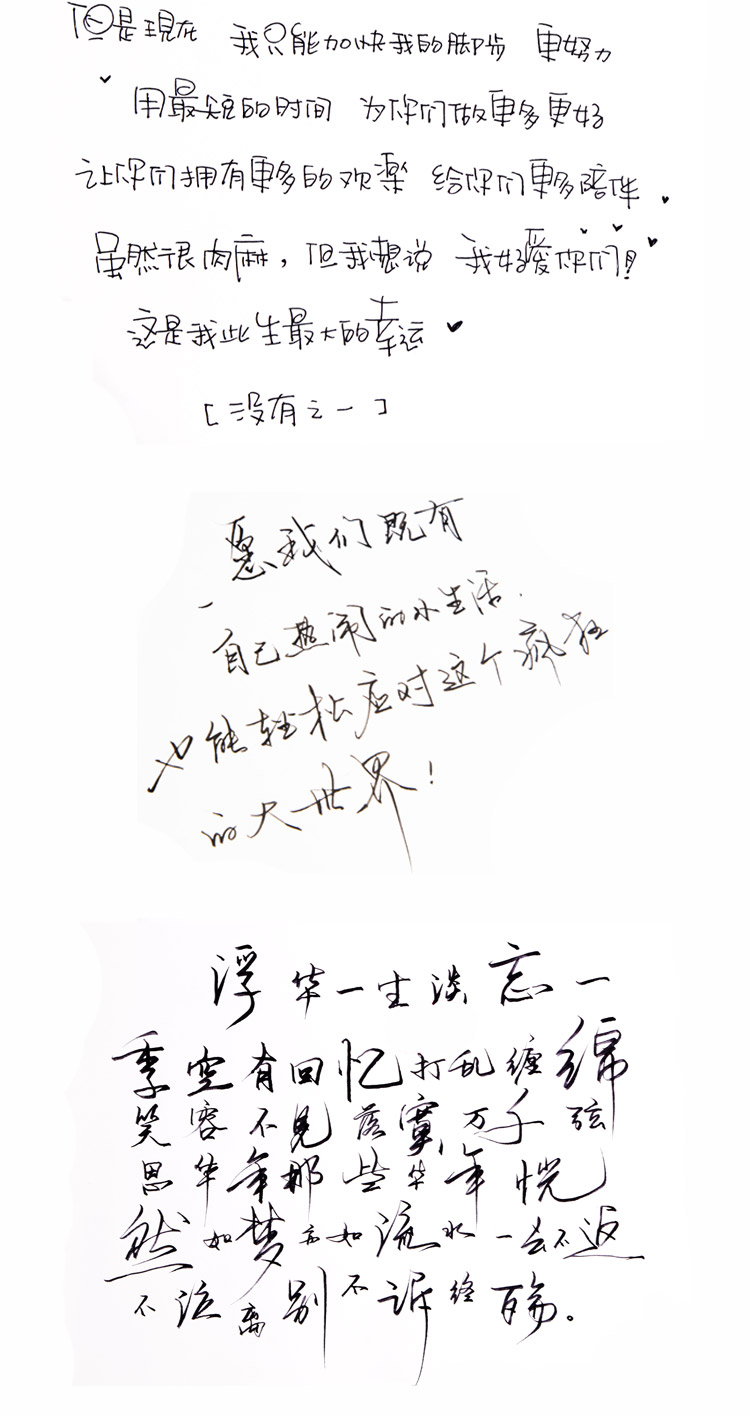 但是现在 我只能加快我的脚步 更努力
用最短的时间 为你们做更多更好
让你们拥有更多的欢樂 给你们更多陪伴
虽然很肉麻，但我想说 我好爱你们!
这是我此生最大的幸运
[没有之一]
愿我们既有
自己热闹的小生活.
也能轻松应对这个疯狂
的大世界!
浮华一生淡忘一
季空有回忆打乱缠绵
笑容不见落寞万千弦
思华年那些华年恍
然如梦亦如流水一去不返
不泣离别不诉终殇。